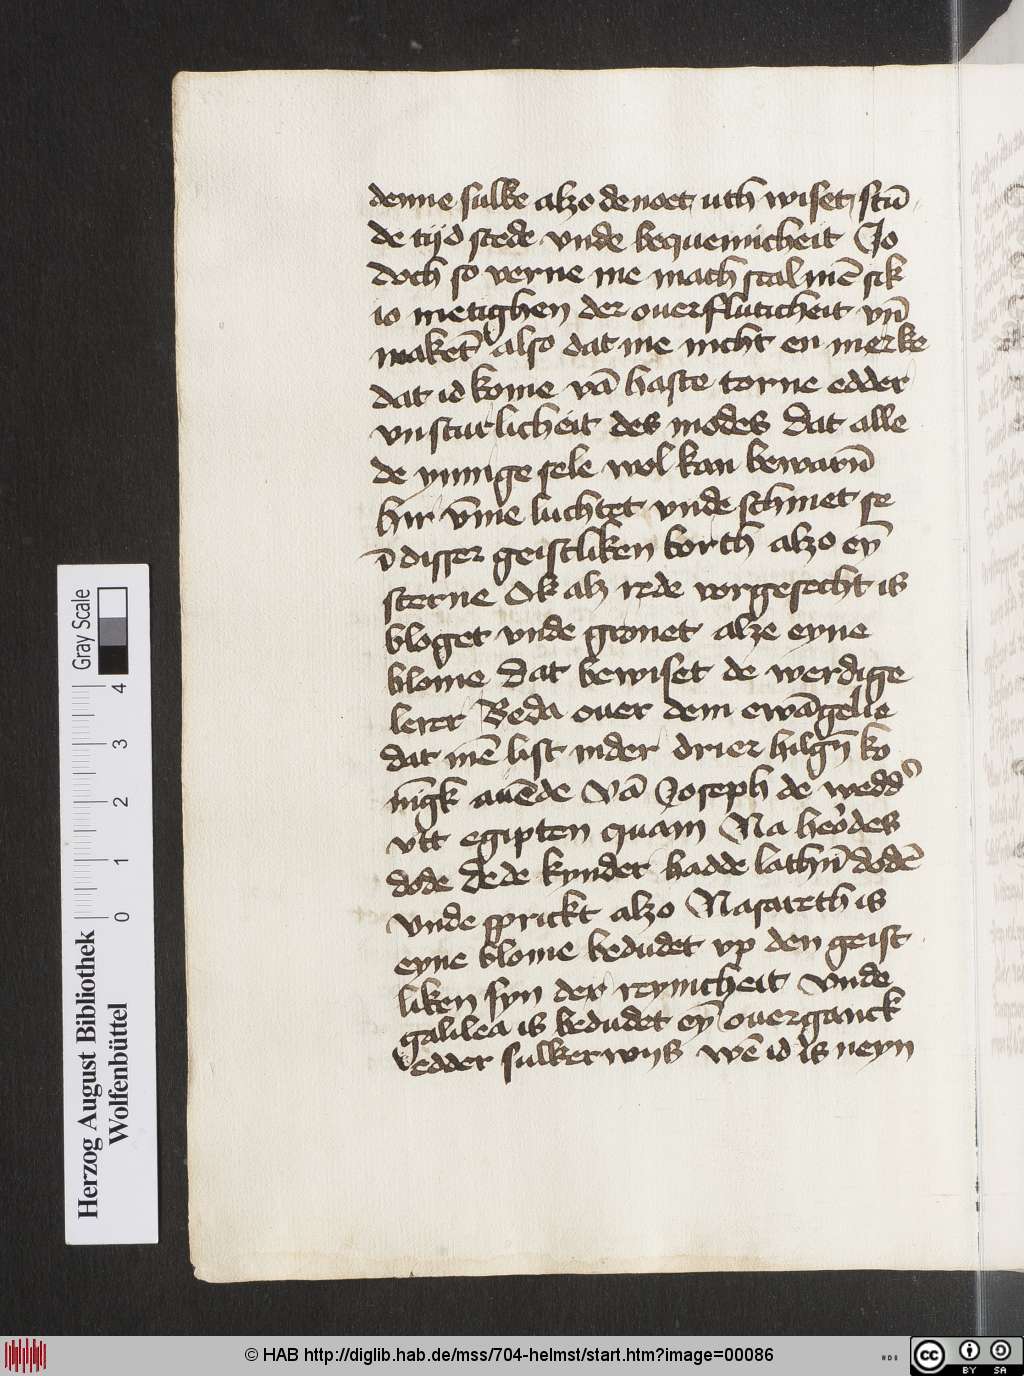 denne sulke alzo de noet uth wiset stū
de tijd stede vnde bequemicheit Jo
doch so verne me mach scal mē sik
io metighen der ouerfluticheit vn̄
maket also dat me nicht en merke
dat id kome vā haste torne edder
vnsturlicheit des modes dat alle
de ynnige sele wol kan bewarn̄
hir v̄me luchtet vnde schinet se
ī disser geistliken borth alzo eȳ
sterne Ok alz rede vorgesecht is
bloget vnde gronet alze eyne
blome dat bewiset de werdige
lerer Beda ouer dem ewāgelie
dat mē list in der drier hilgn̄ ko
nīgk auēde Vā Joseph de wedd'
vtt egipten quam Na herodes
dode de de kynder hadde lathn̄ dodē
vnde sprickt alzo Nasareth is
eyne blome bedudet vp den geist
liken syn der reynicheit vnde
galilea is bedudet eȳ ouerganck
edder sulker wijs wē id is neyn
Herzog August Bibliothek
Wolfenbüttel
0 1 2 3 4
Gray Scale
© HAB http://diglib.hab.de/mss/704-helmst/start.htm?image=00086
cc BY SA